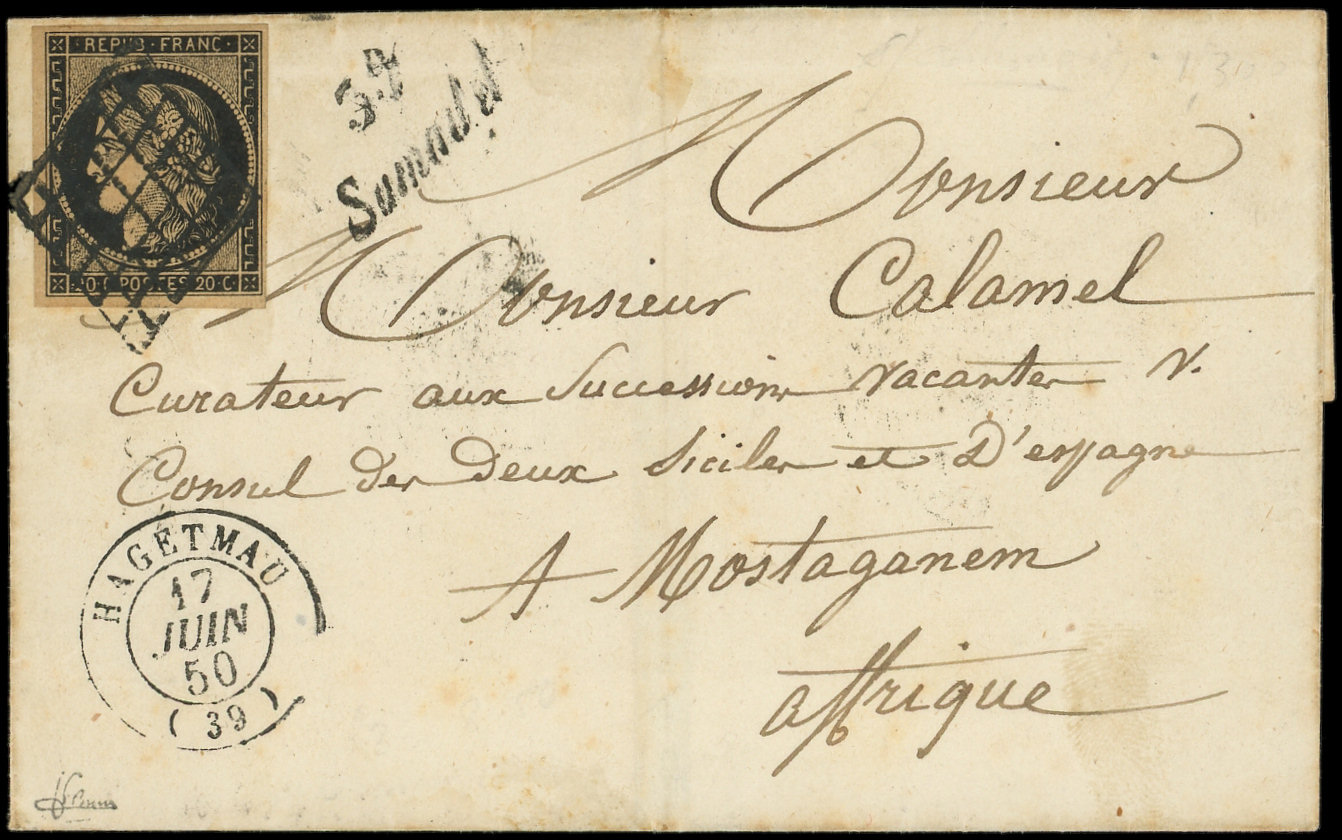 REPUB · FRANC ·
20 · C · POSTES · 20 · C ·
39
Samadet
Monsieur
Monsieur Calamel
Curateur aux Successions vacantes V.
Consul des deux Siciles et D'espagne
A Mostaganem
affrique
HAGETMAU
17
JUIN
50
( 39 )